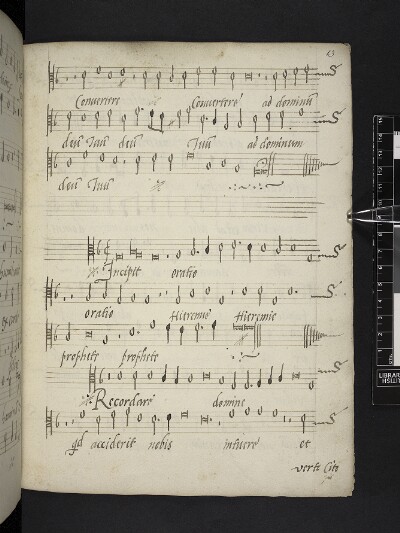 13
Converter Convertere ad dominū
deū tuū deū tuū ad dominum
deū tuū
Incipit oratio
oratio Hieremie Hieremie
prophete prophete
Recordare domine
qd acciderit nobis intuere et
verte Cito